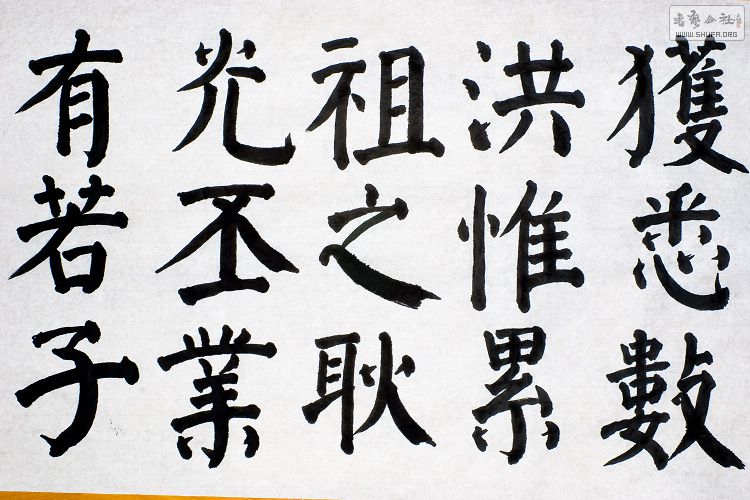 獲悉數
洪惟累
祖之耿
光丕業
有若子
書藝公社
WWW.SHUFA.ORG